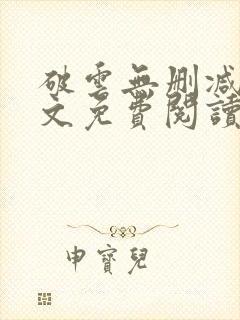 破雲無刪減
文免費閱讀
申寶兒